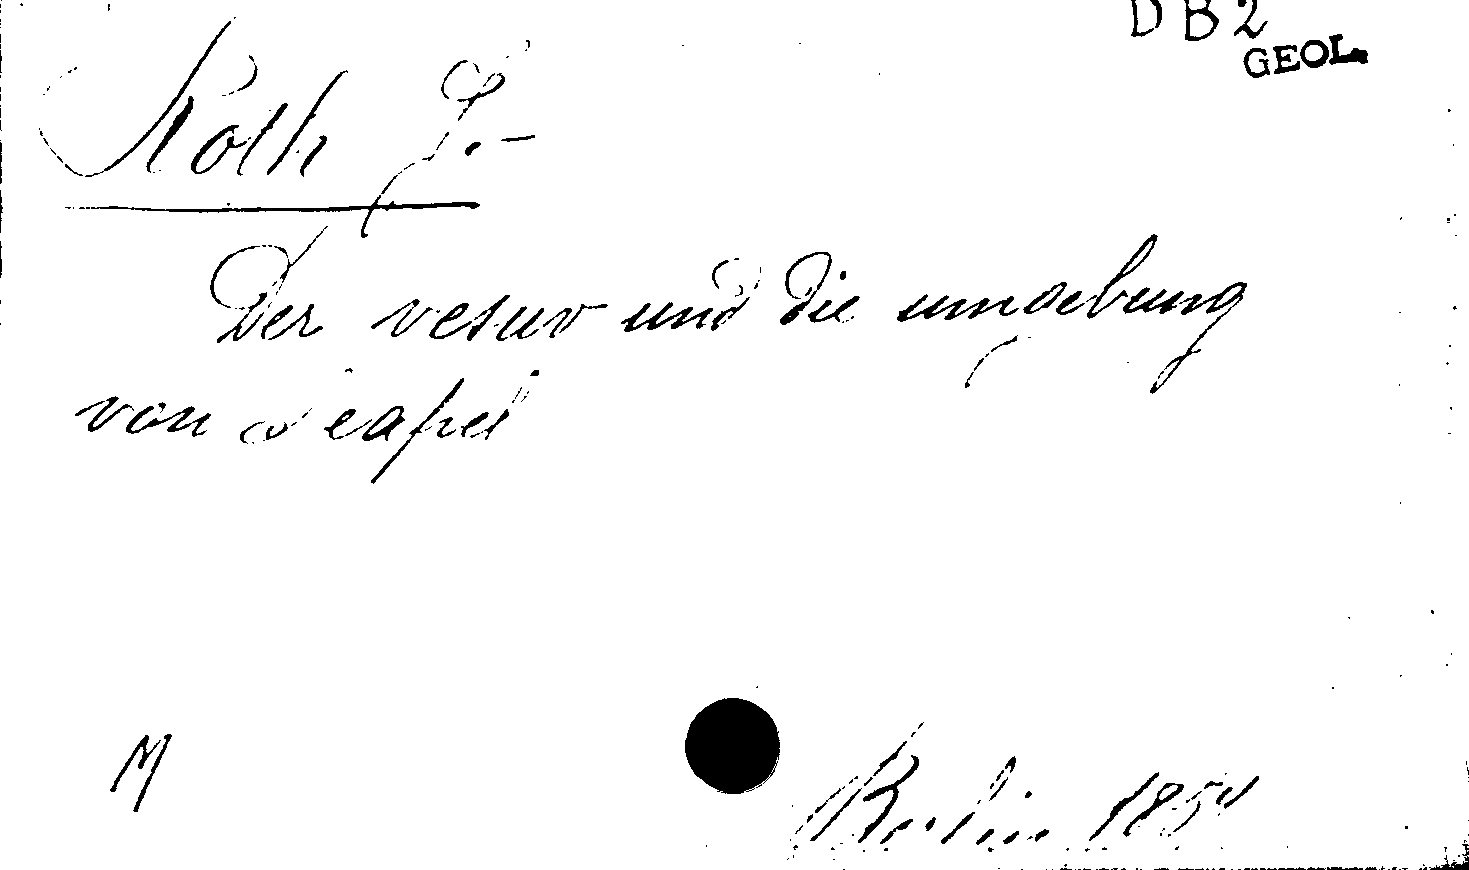 DB2
GEOL.
Roth J.-
Der vesuv und die umgebung
von Neapel
M
Berlin 185